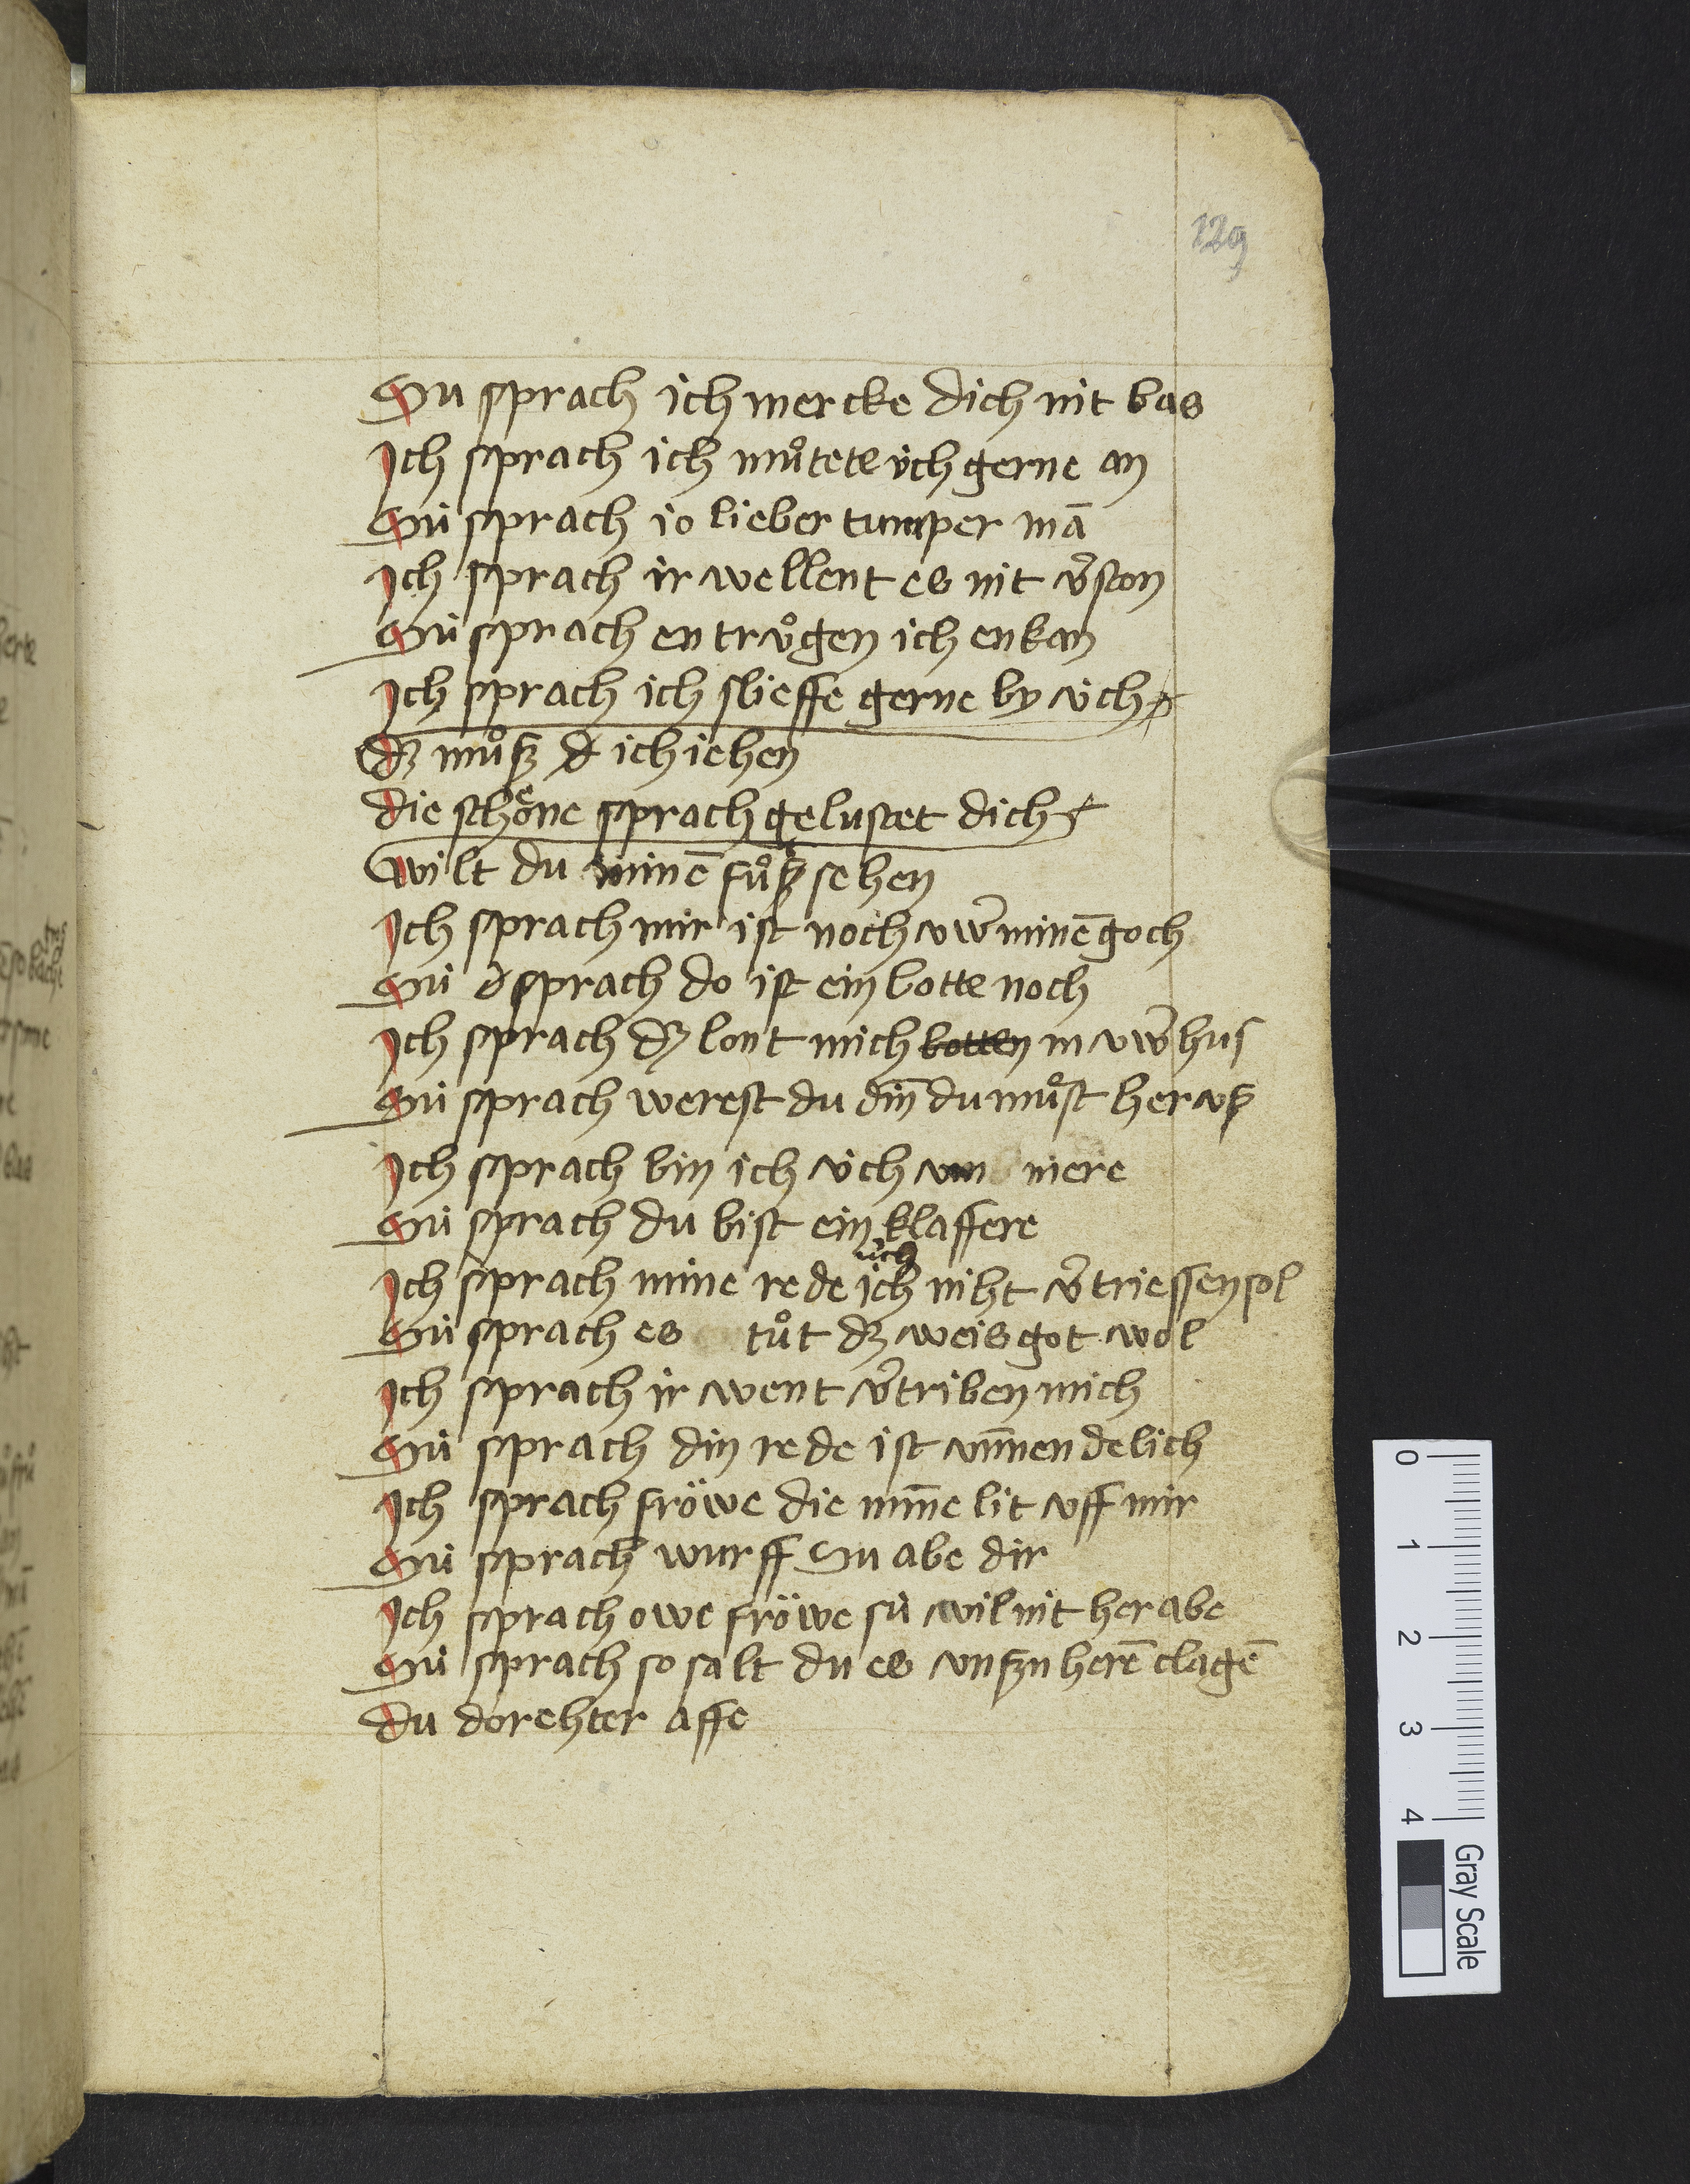 129
Su sprach ich mercke dich nit bas
Ich sprach ich muͦtete v́ch gerne an
Sú sprach io lieber tumper mā
Ich sprach ir wellent es nit v̄ston
Sú sprach en truͦgen ich enkan
Ich sprach ich slieffe gerne by v́ch
dz muͦsz d ich iehen
die schoͤne sprach gelustet dich
wilt du minē fuͦsz sehen
Ich sprach mir ist noch vwer̄ minē goch
Sú sprach do ist ein botte noch
Ich sprach dz lont mich botten in vwer̄ hus
Sú sprach werest du din̄ du muͦst her vsz
Ich sprach bin ich v́ch vn mere
Sú sprach du bist ein klaffere
úch
Ich sprach mine rede ich niht v̄triessen sol
Sú sprach es tuͦt dz weis got wol
Ich sprach ir went v̄triben mich
Sú sprach din rede ist vn̄nendelich
Ich sprach fröwe die min̄e lit vff mir
Sú sprach wurff Su abe dir
Ich sprach owe fröwe sú wil nit her abe
Sú sprach so salt du es vnszn herē clagē
du dorehter affe
0 1 2 3 4
Gray Scale